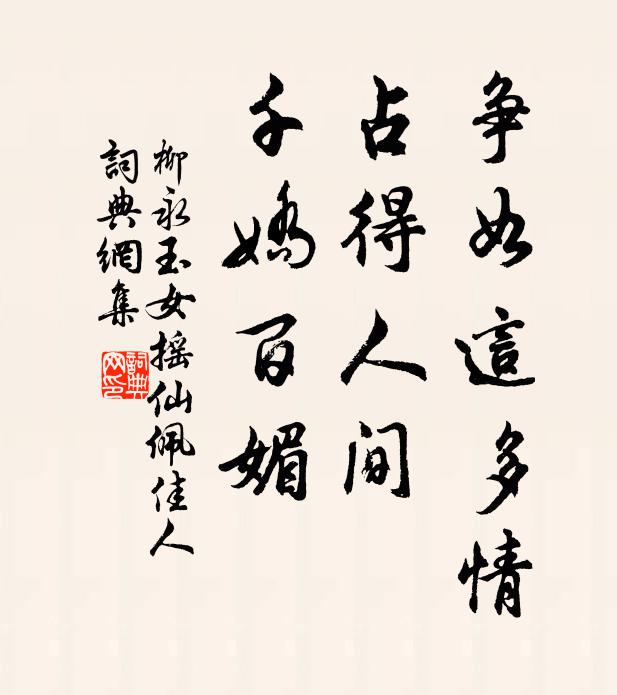 争如這多情
占得人間
千嬌百媚
柳永玉女摇仙佩佳人
詞典網集
詞典网印